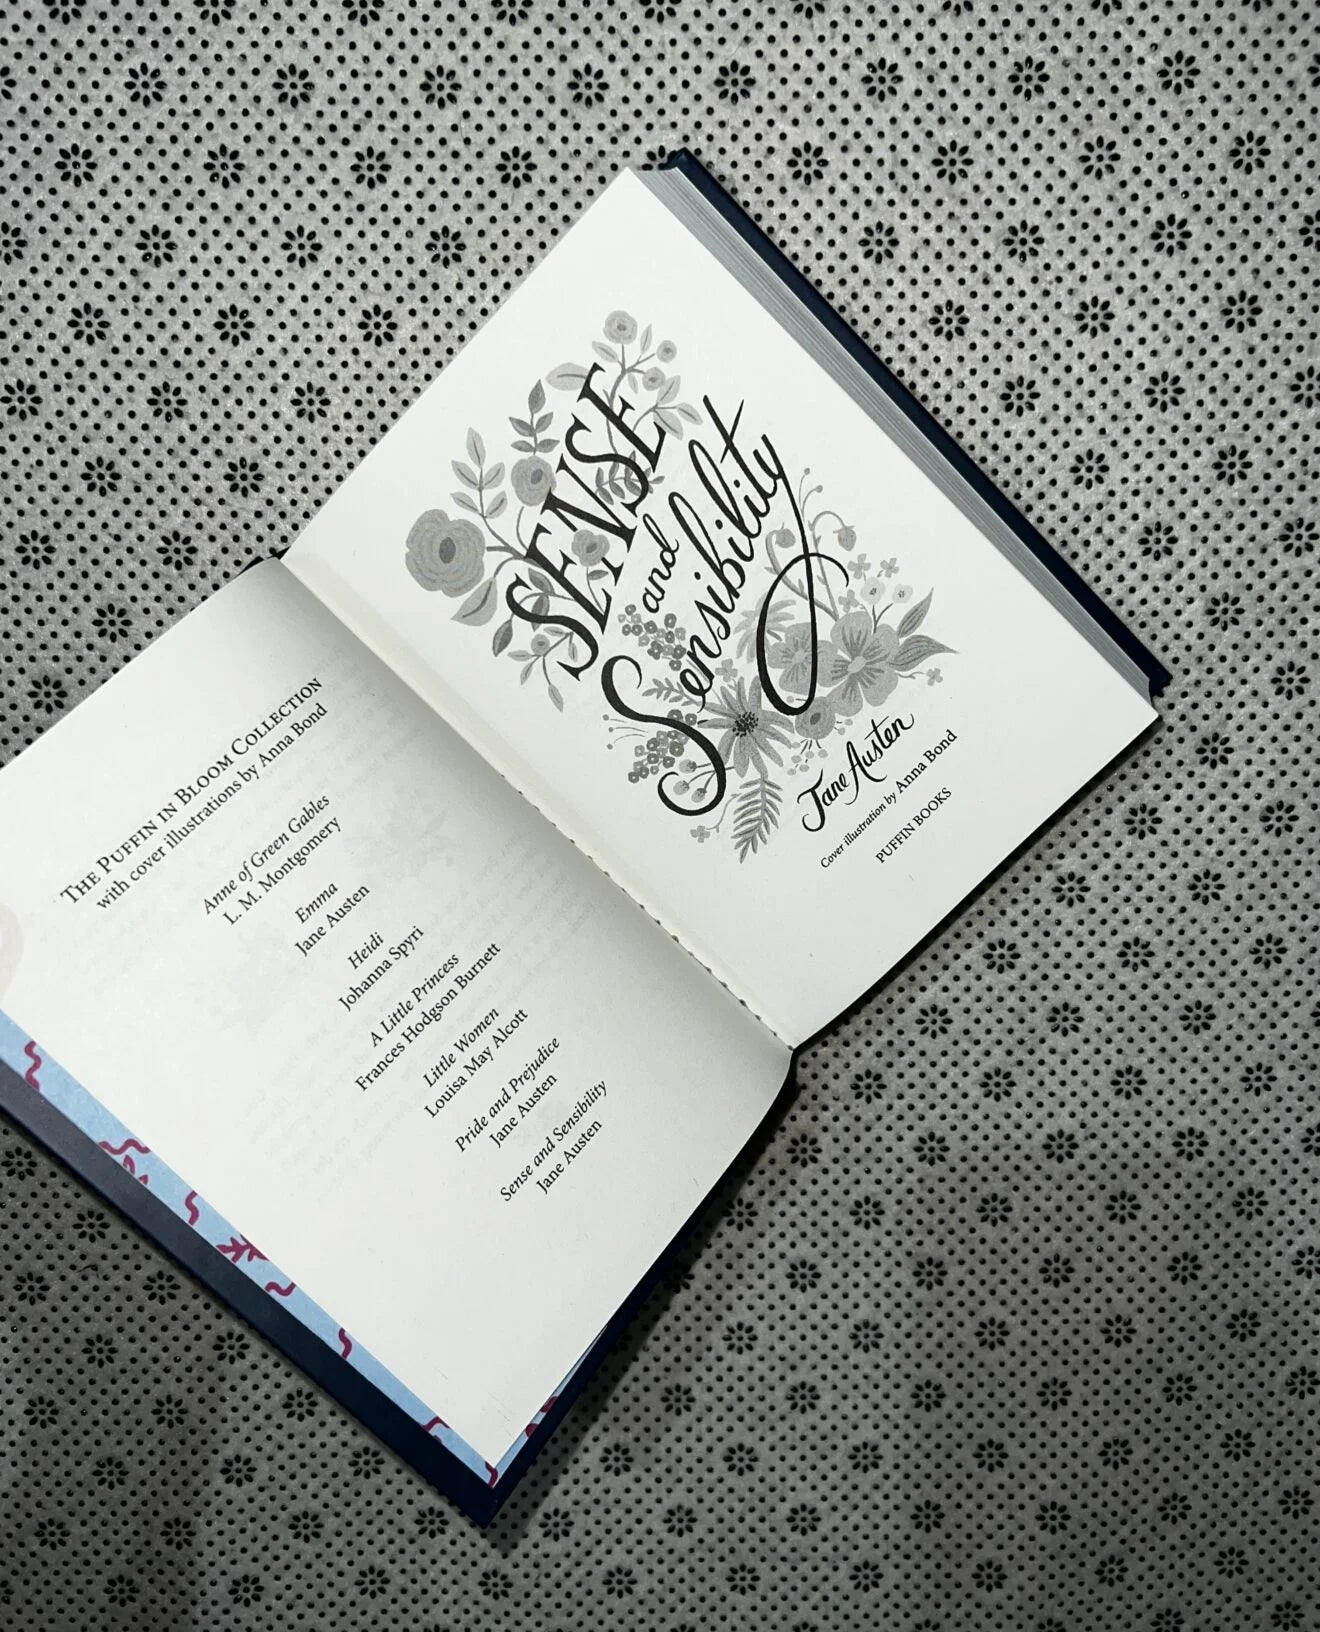 THE PUFFIN IN BLOOM COLLECTION
with cover illustrations by Anna Bond
Anne of Green Gables
L. M. Montgomery
Emma
Jane Austen
Heidi
Johanna Spyri
A Little Princess
Frances Hodgson Burnett
Little Women
Louisa May Alcott
Pride and Prejudice
Jane Austen
Sense and Sensibility
Jane Austen
SENSE
and
Sensibility
Jane Austen
Cover illustration by Anna Bond
PUFFIN BOOKS